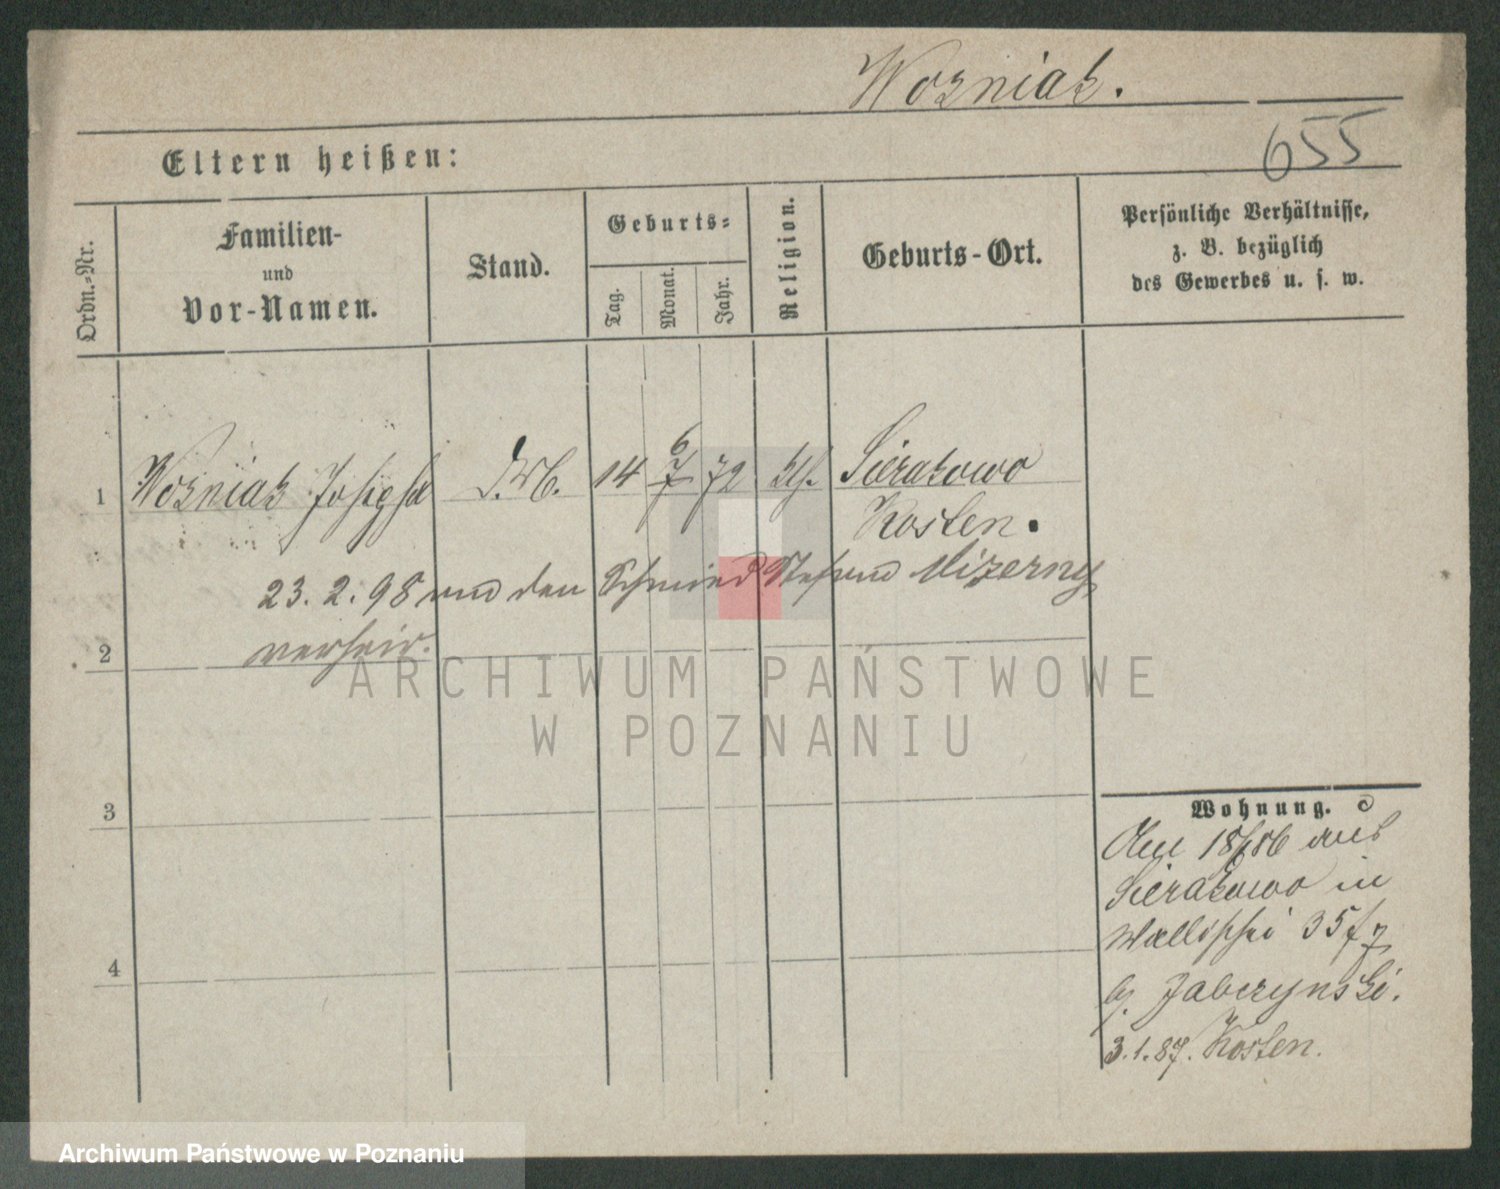 Wozniak.
655
Eltern heißen:
Ordn.-Nr.
Familien-
und
Vor-Namen.
Stand.
Geburts-
Tag.
Monat.
Jahr.
Religion.
Geburts-Ort.
Persönliche Verhältnisse,
z. B. bezüglich
des Gewerbes u. s. w.
1 Wozniak Josepha 14 6/7 72 Sierakowo
Kosten.
23. 2. 98 den Schmied Stefan Mizerny
verheir.
2
3
4
Wohnung.
aus
Sierakowo in
Wallischei 35
Jabczynski.
3.1.87. Kosten.
ARCHIWUM PAŃSTWOWE
W POZNANIU
Archiwum Państwowe w Poznaniu